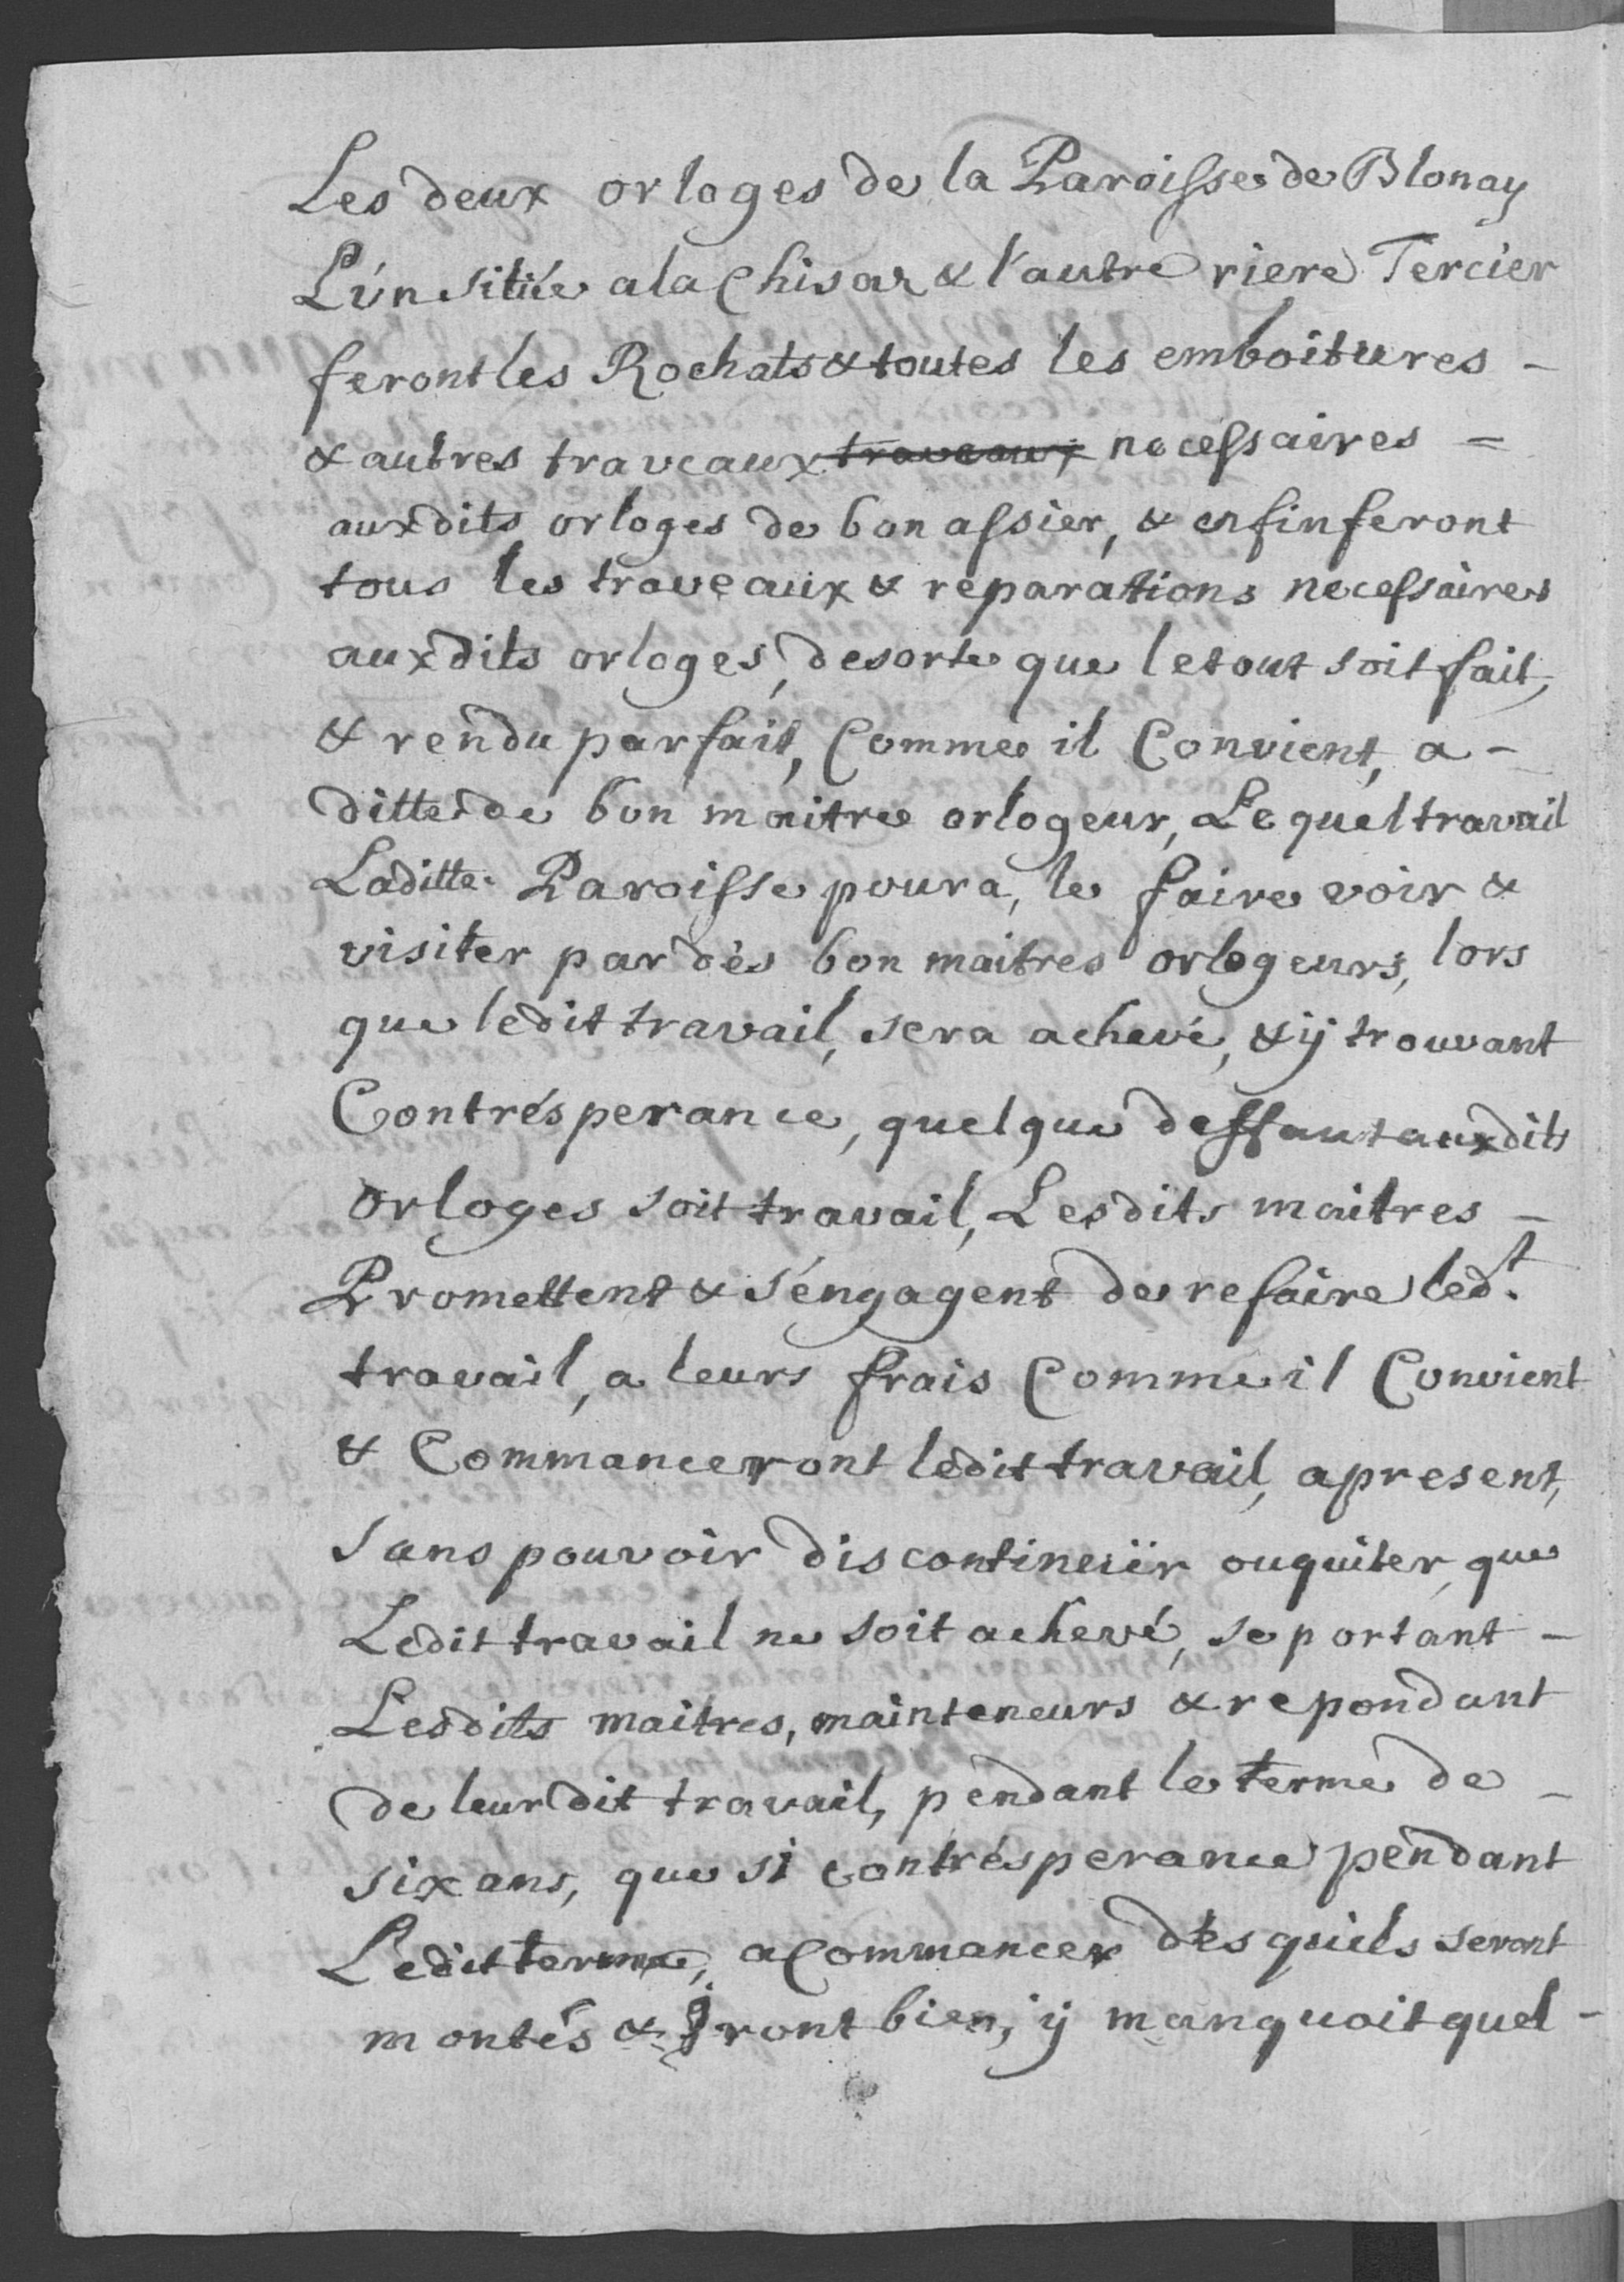 Les deux orloges de la Paroisse de Blonay
L'ún sitüée a la Chisaz & l'autre riere Tercier
feront les Rochats & toutes les emboitures -
& autres traveaux traveaux necessaires =
auxdits orloges de bon assier, & enfin feront
tous les traveaux & reparations necessaires
auxdits orloges, desorte que letout soit fait,
& rendu parfait, Comme il Convient, a -
ditte de bon maitre orlogeur, Le quel travail
Laditte Paroisse poura, le faire voir &
visiter par dés bon maitres orlogeurs, lors
que ledit travail, sera achevé, & ÿ trouvant
Contrésperance, quelque deffaut auxdits
orloges soit travail, Lesdits maitres -
Promettent & s'éngagent de refaire led.t
travail, a leurs frais Comme il Convient
& Commanceront ledit travail, apresent,
sans pouvoir discontinuïr ouquiter, que
Ledit travail ne soit achevé, se portant -
Lesdits maitres, mainteneurs & repondant
de leurdit travail, pendant le terme de -
six ans, que si contrésperance pendant
Ledit terme, a Commancer dés quils seront
montés & Iront bien, ÿ manquoit quel -